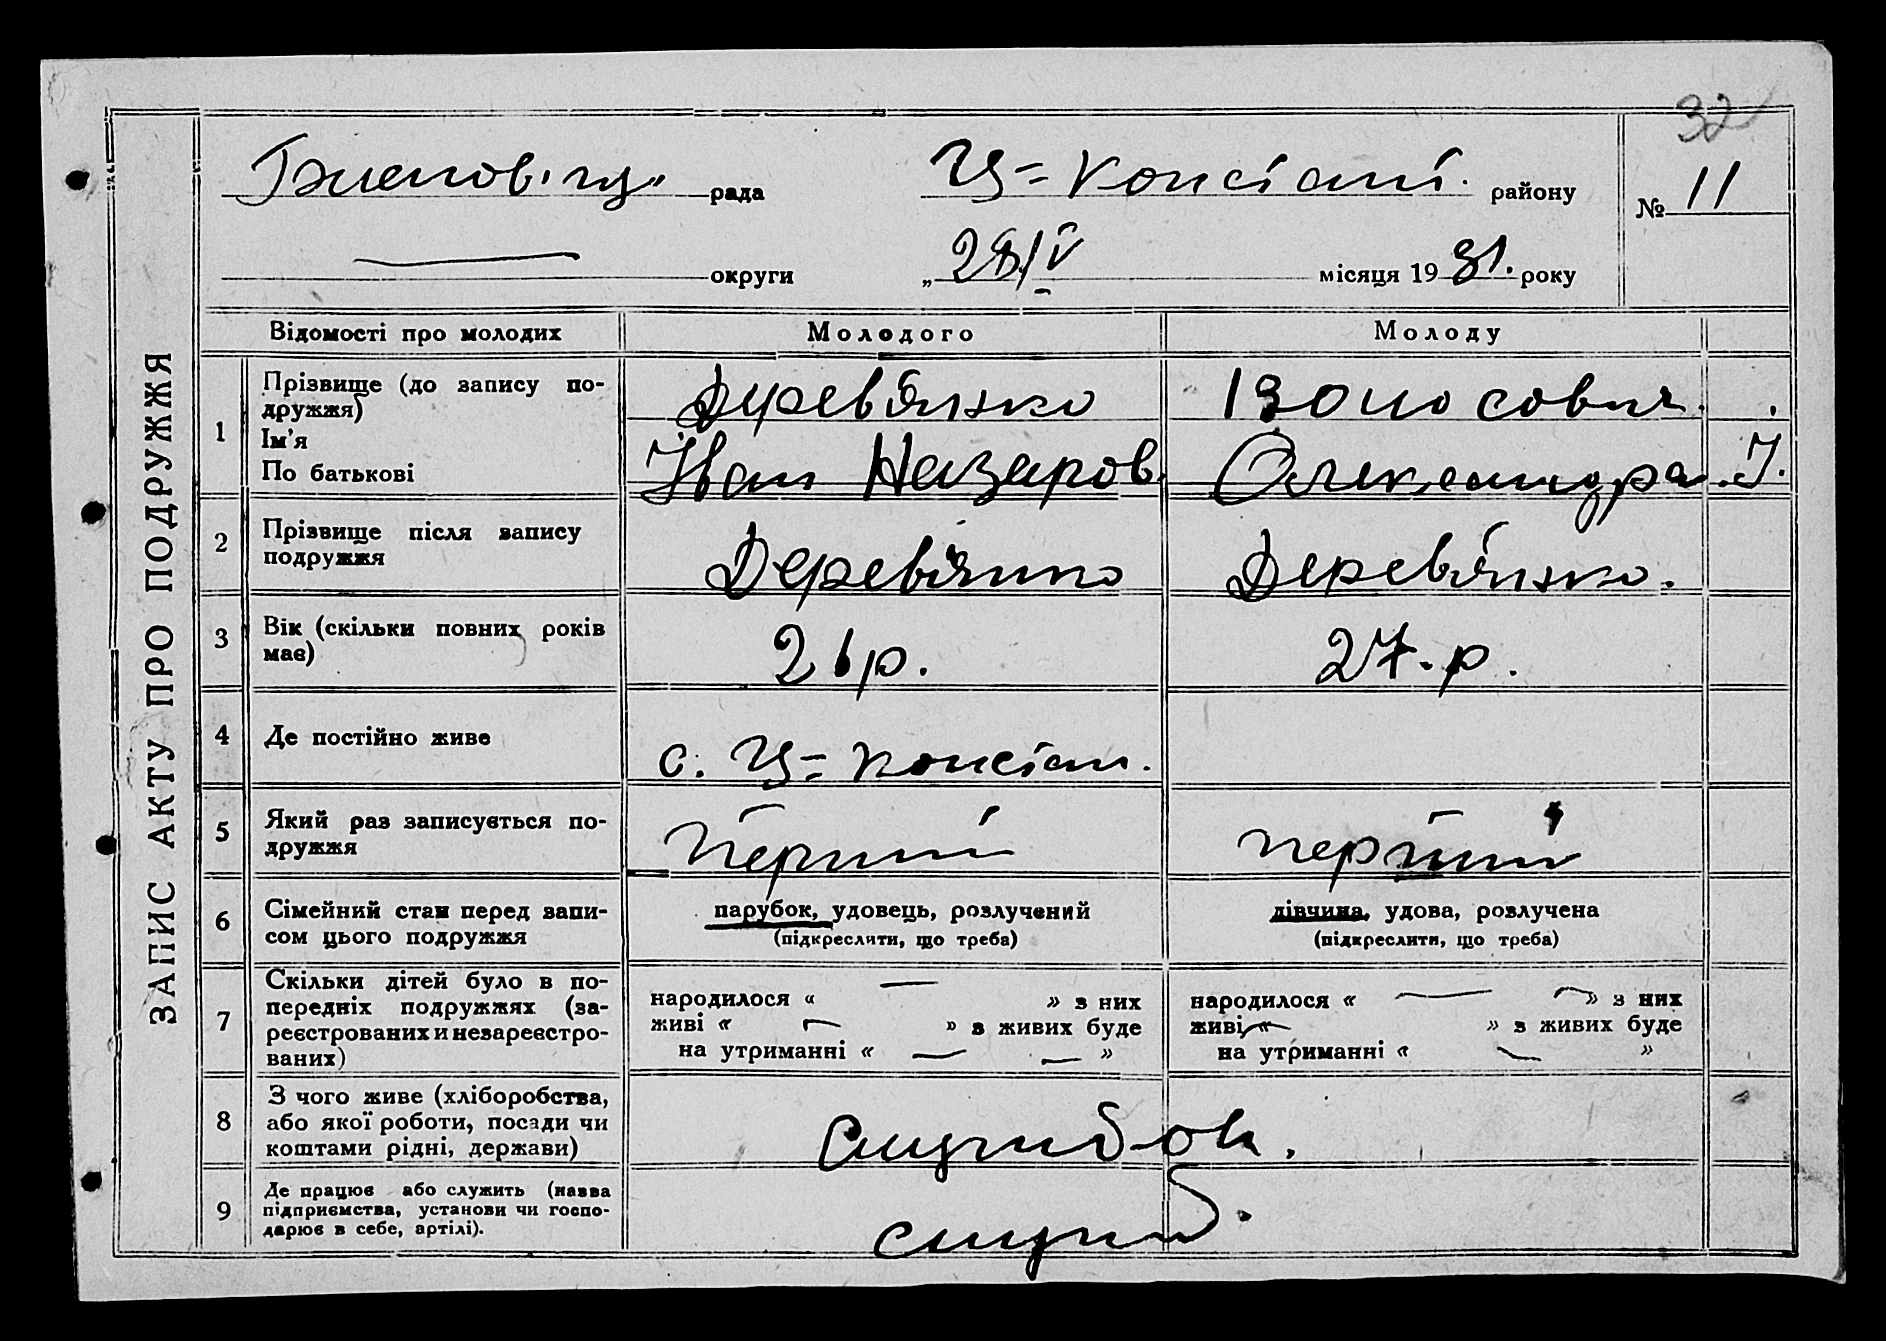 32
рада
Ц=Констант. району
№ 11
округи
„ 28/IV місяця 1931. року
ЗАПИС АКТУ ПРО ПОДРУЖЖЯ
Відомості про молодих
Молодого
Молоду
1
Прізвище (до запису по-
дружжя)
Ім'я
По батькові
Дерев'янко
Іван Назаров.
Олександра. І.
2
Прізвище після запису
подружжя
Дерев'янко
Дерев'янко.
3
Вік (скільки повних років
має)
21 р.
27. р.
4
Де постійно живе
с. Ц=Констан.
5
Який раз записується по-
дружжя
Перший
перший
6
Сімейний стан перед запи-
сом цього подружжя
парубок, удовець, розлучений
(підкреслити, що треба)
дівчина, удова, розлучена
(підкреслити, що треба)
7
Скільки дітей було в по-
передніх подружжях (за-
реєстрованих и незареєстро-
ваних)
народилося « — » з них
живі « — » з живих буде
на утриманні « — — »
народилося « — — » з них
живі « — » з живих буде
на утриманні « — »
8
З чого живе (хліборобства,
або якої роботи, посади чи
коштами рідні, держави)
9
Де працює або служить (назва
підприємства, установи чи госпо-
дарює в себе, артілі).